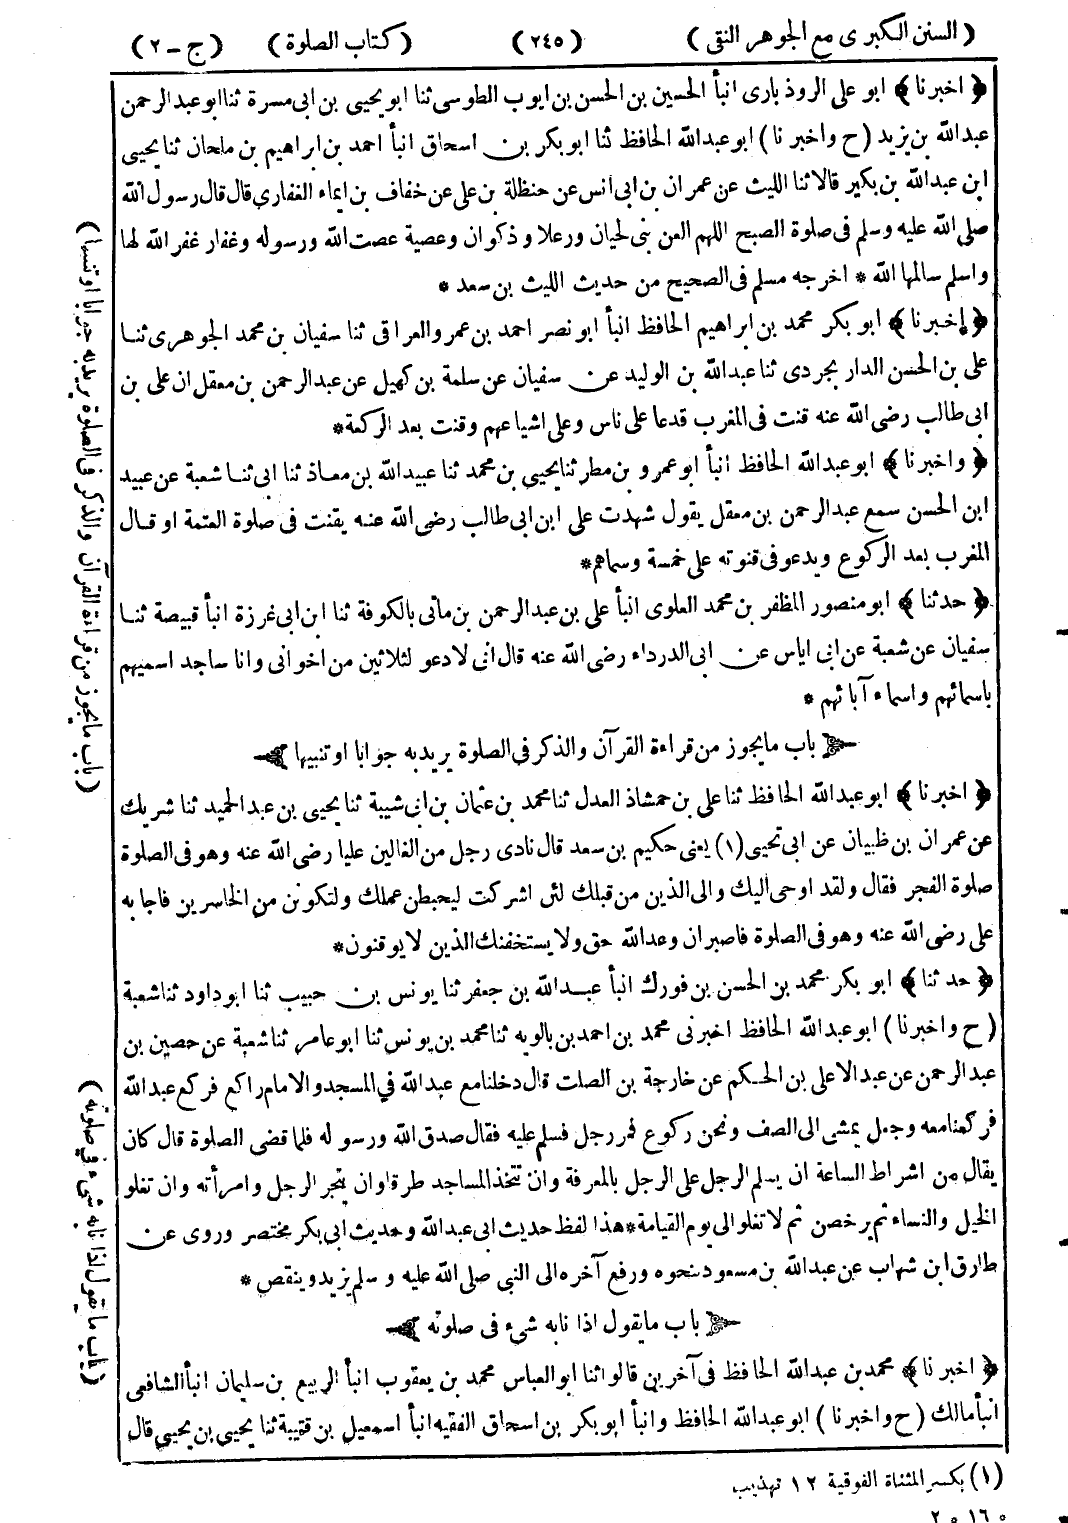 (السنن الكبرى مع الجوهر النقى) (٢٤٥) (كتاب الصلوة) (ج - ٢)
﴿ اخبرنا ﴾ ابو على الروذبارى انبأ الحسين بن الحسن بن ايوب الطوسى ثنا ابو يحيى بن ابى مسرة ثنا ابو عبدالرحمن
عبدالله بن يزيد (ح واخبرنا) ابو عبدالله الحافظ ثنا ابو بكر بن اسحاق انبأ احمد بن ابراهيم بن ملحان ثنا يحيى
ابن عبدالله بن بكير قالا ثنا الليث عن عمران بن ابى انس عن حنظلة بن على عن خفاف بن ايماء الغفاري قال قال رسول الله
صلى الله عليه وسلم فى صلوة الصبح اللهم العن بنى لحيان ورعلا وذكوان وعصية عصت الله ورسوله وغفار غفر الله لها
واسلم سالمها الله * اخرجه مسلم فى الصحيح من حديث الليث بن سعد *
﴿ اخبرنا ﴾ ابو بكر محمد بن ابراهيم الحافظ انبأ ابو نصر احمد بن عمرو العراقى ثنا سفيان بن محمد الجوهرى ثنا
على بن الحسن الدار بجردى ثنا عبدالله بن الوليد عن سفيان عن سلمة بن كهيل عن عبدالرحمن بن معقل ان على بن
ابى طالب رضى الله عنه قنت فى المغرب فدعا على ناس وعلى اشياعهم وقنت بعد الركعة *
﴿ واخبرنا ﴾ ابو عبدالله الحافظ انبأ ابو عمرو بن مطر ثنا يحيى بن محمد ثنا عبيدالله بن معاذ ثنا ابى ثنا شعبة عن عبيد
ابن الحسن سمع عبدالرحمن بن معقل يقول شهدت على ابن ابى طالب رضى الله عنه يقنت فى صلوة العتمة او قال
المغرب بعد الركوع ويدعو فى قنوته على خمسة وسماهم *
﴿ حدثنا ﴾ ابو منصور المظفر بن محمد العلوى انبأ على بن عبدالرحمن بن ماتى بالكوفة ثنا ابن ابى غرزة انبأ قبيصة ثنا
سفيان عن شعبة عن ابى اياس عن ابى الدرداء رضى الله عنه قال انى لادعو لثلاثين من اخوانى وانا ساجد اسميهم
باسمائهم واسماء آبائهم *
باب ما يجوز من قراءة القرآن والذكر فى الصلوة يريد به جوابا او تنبيها
﴿ اخبرنا ﴾ ابو عبدالله الحافظ ثنا على بن حمشاذ العدل ثنا محمد بن عثمان بن ابى شيبة ثنا يحيى بن عبدالحميد ثنا شريك
عن عمران بن ظبيان عن ابى تحيى (١) يعنى حكيم بن سعد قال نادى رجل من الغالين عليا رضى الله عنه وهو فى الصلوة
صلوة الفجر فقال ولقد اوحى اليك والى الذين من قبلك لئن اشركت ليحبطن عملك ولتكونن من الخاسرين فاجابه
على رضى الله عنه وهو فى الصلوة فاصبر ان وعد الله حق ولا يستخفنك الذين لا يوقنون *
﴿ حدثنا ﴾ ابو بكر محمد بن الحسن بن فورك انبأ عبدالله بن جعفر ثنا يونس بن حبيب ثنا ابو داود ثنا شعبة
(ح واخبرنا) ابو عبدالله الحافظ اخبرنى محمد بن احمد بن بالويه ثنا محمد بن يونس ثنا ابو عامر ثنا شعبة عن حصين بن
عبدالرحمن عن عبدالاعلى بن الحكم عن خارجة بن الصلت قال دخلنا مع عبدالله فى المسجد والامام راكع فركع عبدالله
فركعنا معه وجعل يمشى الى الصف ونحن ركوع فمر رجل فسلم عليه فقال صدق الله ورسوله فلما قضى الصلوة قال كان
يقال من اشراط الساعة ان يسلم الرجل على الرجل بالمعرفة وان تتخذ المساجد طرقا وان يتجر الرجل وامرأته وان تغلو
الخيل والنساء ثم يرخصن ثم لا تغلو الى يوم القيامة * هذا لفظ حديث ابى عبدالله وحديث ابى بكر مختصر وروى عن
طارق ابن شهاب عن عبدالله بن مسعود بنحوه ورفع آخره الى النبى صلى الله عليه وسلم يزيد وينقص *
باب ما يقول اذا نابه شىء فى صلوته
﴿ اخبرنا ﴾ محمد بن عبدالله الحافظ فى آخرين قالوا ثنا ابو العباس محمد بن يعقوب انبأ الربيع بن سليمان انبأ الشافعى
انبأ مالك (ح واخبرنا) ابو عبدالله الحافظ وانبأ ابو بكر بن اسحاق الفقيه انبأ اسمعيل بن قتيبة ثنا يحيى بن يحيى قال
(باب ما يجوز من قراءة القرآن والذكر فى الصلوة يريد به جوابا او تنبيها)
(باب ما يقول اذا نابه شىء فى صلوته)
(١) بكسر المثناة الفوقية ١٢ تهذيب